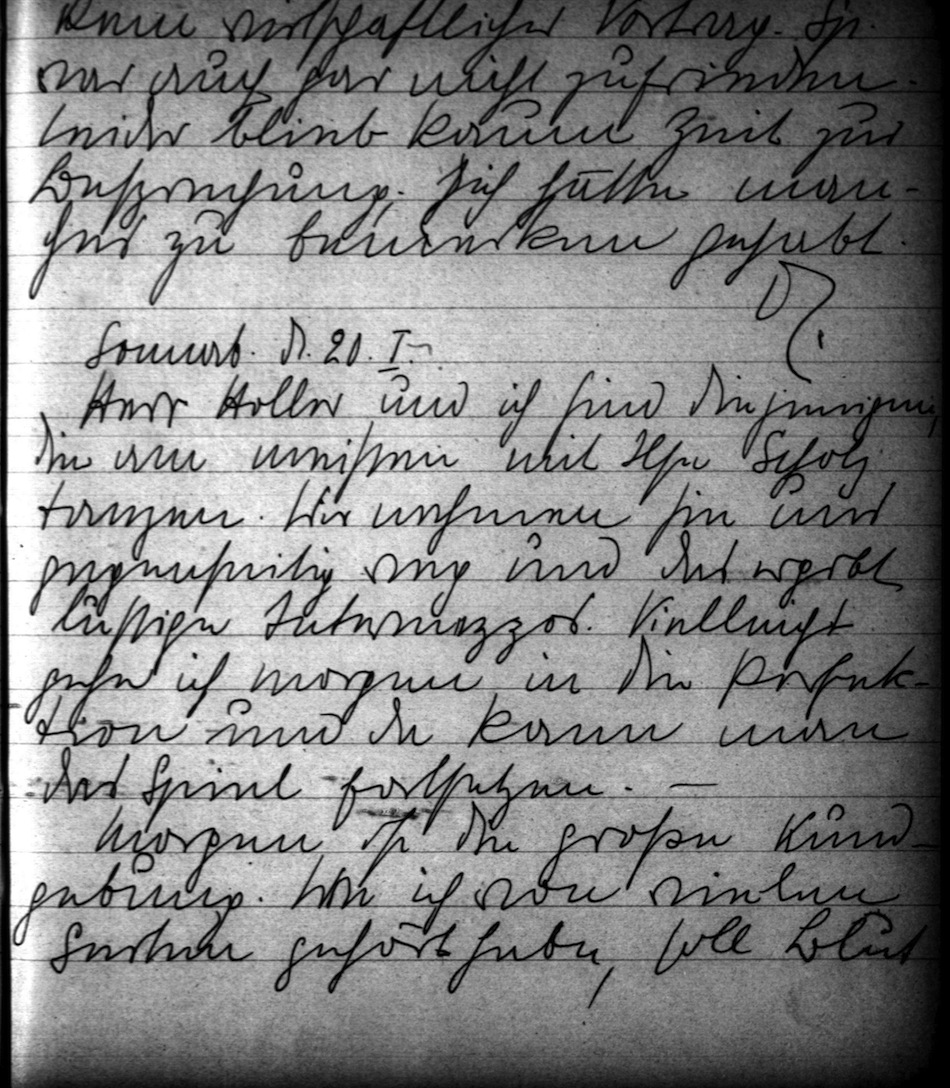 kein wirtschaftlicher Vortrag. Sp.
war auch gar nicht zufrieden.
Leider blieb kaum Zeit zur
Besprechung. Ich hätte man-
ches zu bemerken gehabt.
Sonnab. d. 20. I.
Herr Holler und ich sind diejenigen,
die am meisten mit Ilse Scholz
tanzen. Wir nehmen sie uns
gegenseitig weg und das ergibt
lustige Intermezzos. Vielleicht
gehe ich morgen in die Perfek-
tion und da kann man
das Spiel fortsetzen. —
Morgen ist die große Kund-
gebung. Wie ich von vielen
Seiten gehört habe, soll Blut